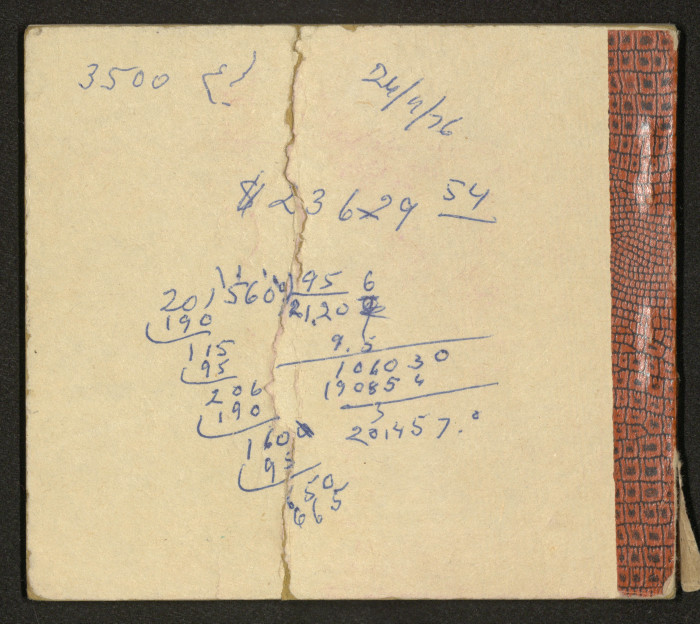 3500
24/4/76
$ 23629 54
201,560 95 6
190 21,20
115 9.5
95 106030
206 190854
190 3
160 201457.0
95
505
665